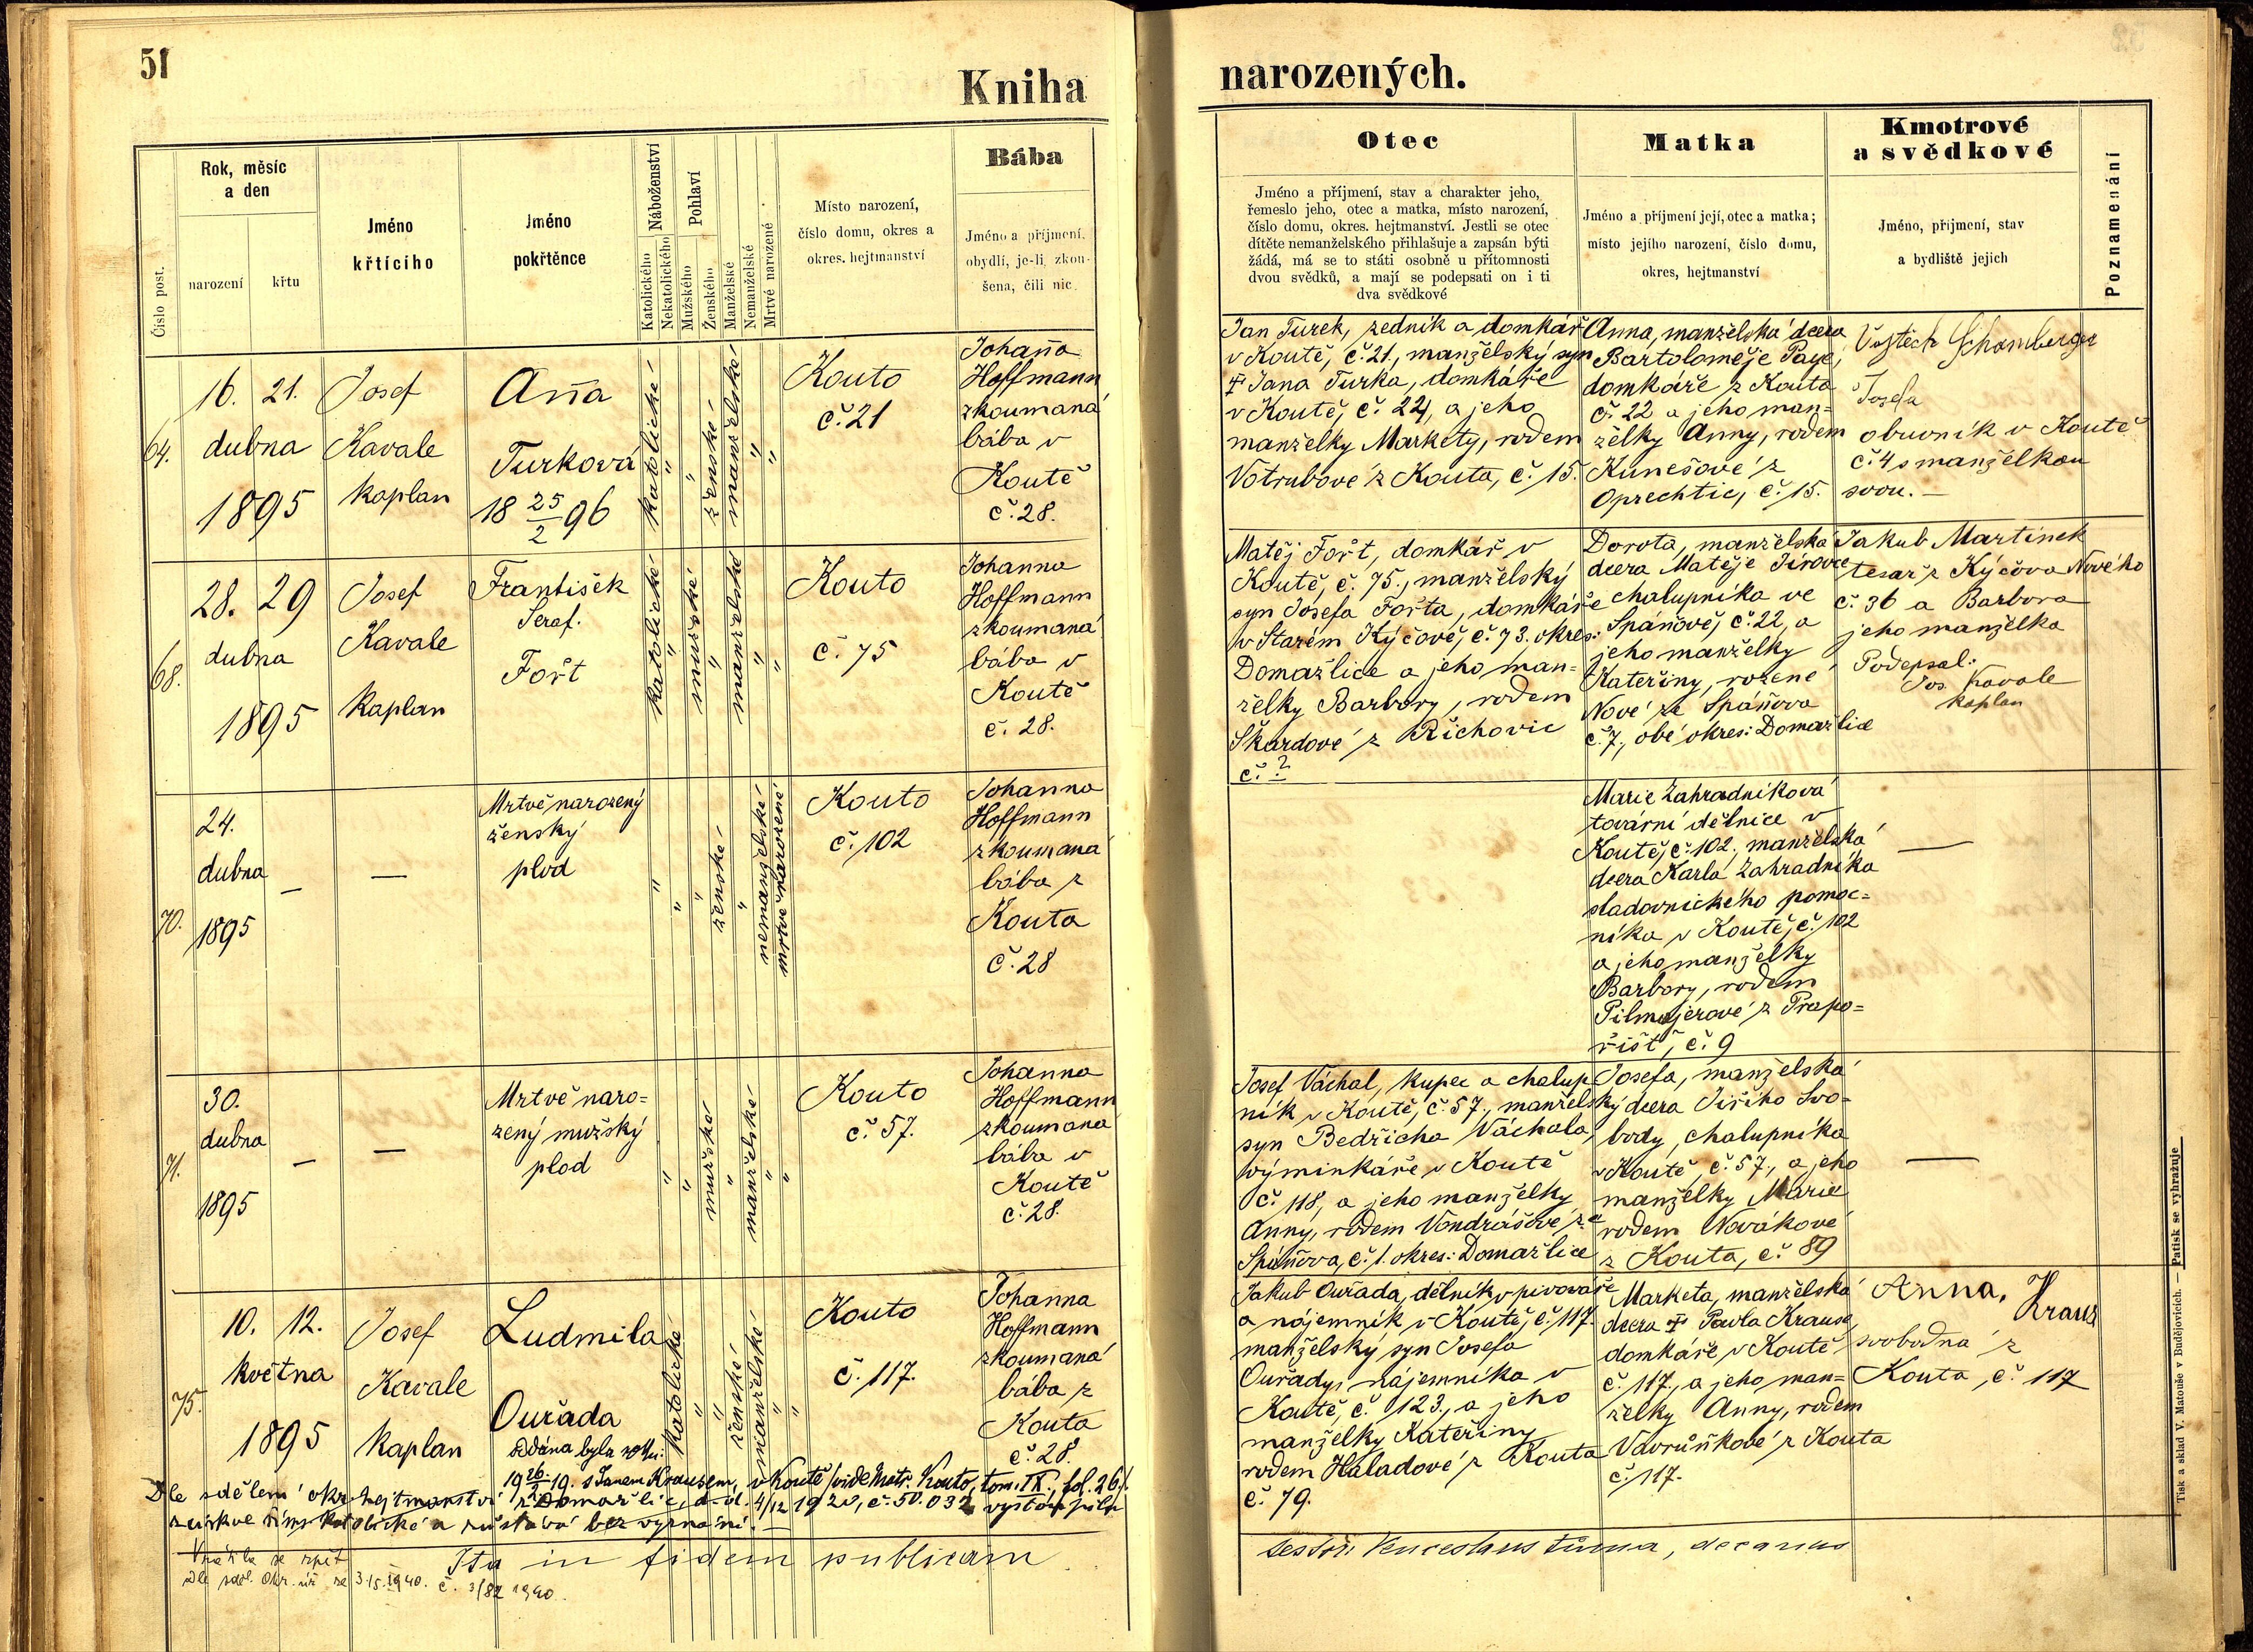 51
Kniha
narozených.
Číslo post.
Rok, měsíc
a den
narození
křtu
Jméno
křtícího
Jméno
pokřtěnce
Náboženství
Katolického
Nekatolického
Pohlaví
Mužského
Ženského
Manželské
Nemanželské
Mrtvé narozené
Místo narození,
číslo domu, okres a
okres. hejtmanství
Bába
Jméno a příjmení,
obydlí, je-li zkou-
šena, čili nic.
Otec
Jméno a příjmení, stav a charakter jeho,
řemeslo jeho, otec a matka, místo narození,
číslo domu, okres. hejtmanství. Jestli se otec
dítěte nemanželského přihlašuje a zapsán býti
žádá, má se to státi osobně u přítomnosti
dvou svědků, a mají se podepsati on i ti
dva svědkové
Matka
Jméno a příjmení její, otec a matka;
místo jejího narození, číslo domu,
okres, hejtmanství
Kmotrové
a svědkové
Jméno, příjmení, stav
a bydliště jejich
Poznamenání
64.
16. 21.
dubna
1895
Josef
Kavale
kaplan
Aña
Turková
18 25/2 96
katolické
"
"
ženské
manželské
"
"
Kouto
č. 21
Johaña
Hoffmann
zkoumaná
bába v
Koutě
č. 28.
Jan Turek, zedník a domkář
v Koutě, č. 21., manželský syn
† Jana Turka, domkáře
v Koutě, č. 22, a jeho
manželky Markety, rodem
Votrubové z Kouta, č. 15.
Anna, manželská dcera
Bartoloměje Paye,
domkáře z Kouta
č. 22 a jeho man=
želky Anny, rodem
Kunešové z
Oprechtic, č. 15.
Vojtěch Schamberger
Josefa
obuvník v Koutě
č. 4 s manželkou
svou. —
68.
28. 29
dubna
1895
Josef
Kavale
kaplan
František
Seraf.
Fořt
katolické
"
mužské
"
manželské
"
"
Kouto
č. 75
Johanna
Hoffmann
zkoumaná
bába v
Koutě
č. 28.
Matěj Fořt, domkář v
Koutě, č. 75., manželský
syn Josefa Fořta, domkáře
v Starém Kýčově, č. 73. okres:
Domažlice a jeho man=
želky Barbory, rodem
Škardové z Řichovic
č. ?
Dorota, manželská
dcera Matěje Jírovce
chalupníka ve
Spáňově, č. 22, a
jeho manželky
Kateřiny, rozené
Nové ze Spáňova
č. 7., obé okres: Domažlice
Jakub Martínek
tesař z Kýčova Nového
č. 36 a Barbora
jeho manželka
Podepsal:
Jos. Kavale
kaplan
70.
24.
dubna
1895
—
—
Mrtvě narozený
ženský
plod
"
"
"
ženské
"
nemanželské
mrtvě narozené
Kouto
č. 102
Johanna
Hoffmann
zkoumaná
bába z
Kouta
č. 28
Marie Zahradníková
tovární dělnice v
Koutě, č. 102., manželská
dcera Karla Zahradníka
sladovnického pomoc=
níka v Koutě, č. 102
a jeho manželky
Barbory, rodem
Pilmajerové z Prapo=
řišť, č. 9
—
71.
30.
dubna
1895
—
—
Mrtvě naro=
zený mužský
plod
"
"
mužské
"
manželské
"
"
Kouto
č. 57.
Johanna
Hoffmann
zkoumaná
bába v
Koutě
č. 28.
Josef Váchal, kupec a chalup
ník v Koutě, č. 57., manželský
syn Bedřicha Váchala,
výminkáře v Koutě
č. 118, a jeho manželky
Anny, rodem Vondrášové ze
Spáňova, č. 1. okres: Domažlice
Josefa, manželská
dcera Jiřího Svo=
body, chalupníka
v Koutě, č. 57., a jeho
manželky Marie
rodem Novákové
z Kouta, č. 89
—
75.
10. 12.
května
1895
Josef
Kavale
kaplan
Ludmila
Ouřada
oddána byla
19 26/2 19. s Janem Krausem, v Koutě/vide Matr. Kouto, tom. IX., fol. 26/.
katolické
"
"
ženské
manželské
"
"
Kouto
č. 117.
Johanna
Hoffmann
zkoumaná
bába z
Kouta
č. 28.
Jakub Ouřada, dělník v pivováře
a nájemník v Koutě, č. 117.
manželský syn Josefa
Ouřady, nájemníka v
Koutě, č. 123., a jeho
manželky Kateřiny
rodem Haladové z Kouta
č. 79.
Marketa, manželská
dcera † Pavla Krause,
domkáře v Koutě
č. 117., a jeho man=
želky Anny, rodem
Vavruňkové z Kouta
č. 117.
Anna Kraus
svobodná z
Kouta, č. 117
Dle sdělení okr. hejtmanství z Domažlic, d-d. 4/12 1920, č. 50.032 vystoupila
z církve římskokatolické a zůstává bez vyznání. —
Vrátila se zpět
dle sděl. Okr. úř. ze 3. 1940. č. 3182 1940.
Ita in fidem publicam
Venceslaus Tůma, decanus
Tisk a sklad V. Matouše v Budějovicích. — Patisk se vyhražuje